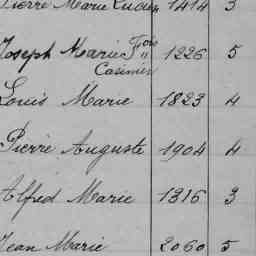 Pierre Marie Lucien 1414 3
Joseph Marie Fois 1226 5
Casimir "
Louis Marie 1823 4
Pierre Auguste 1904 4
Alfred Marie 1316 3
Jean Marie 2060 5